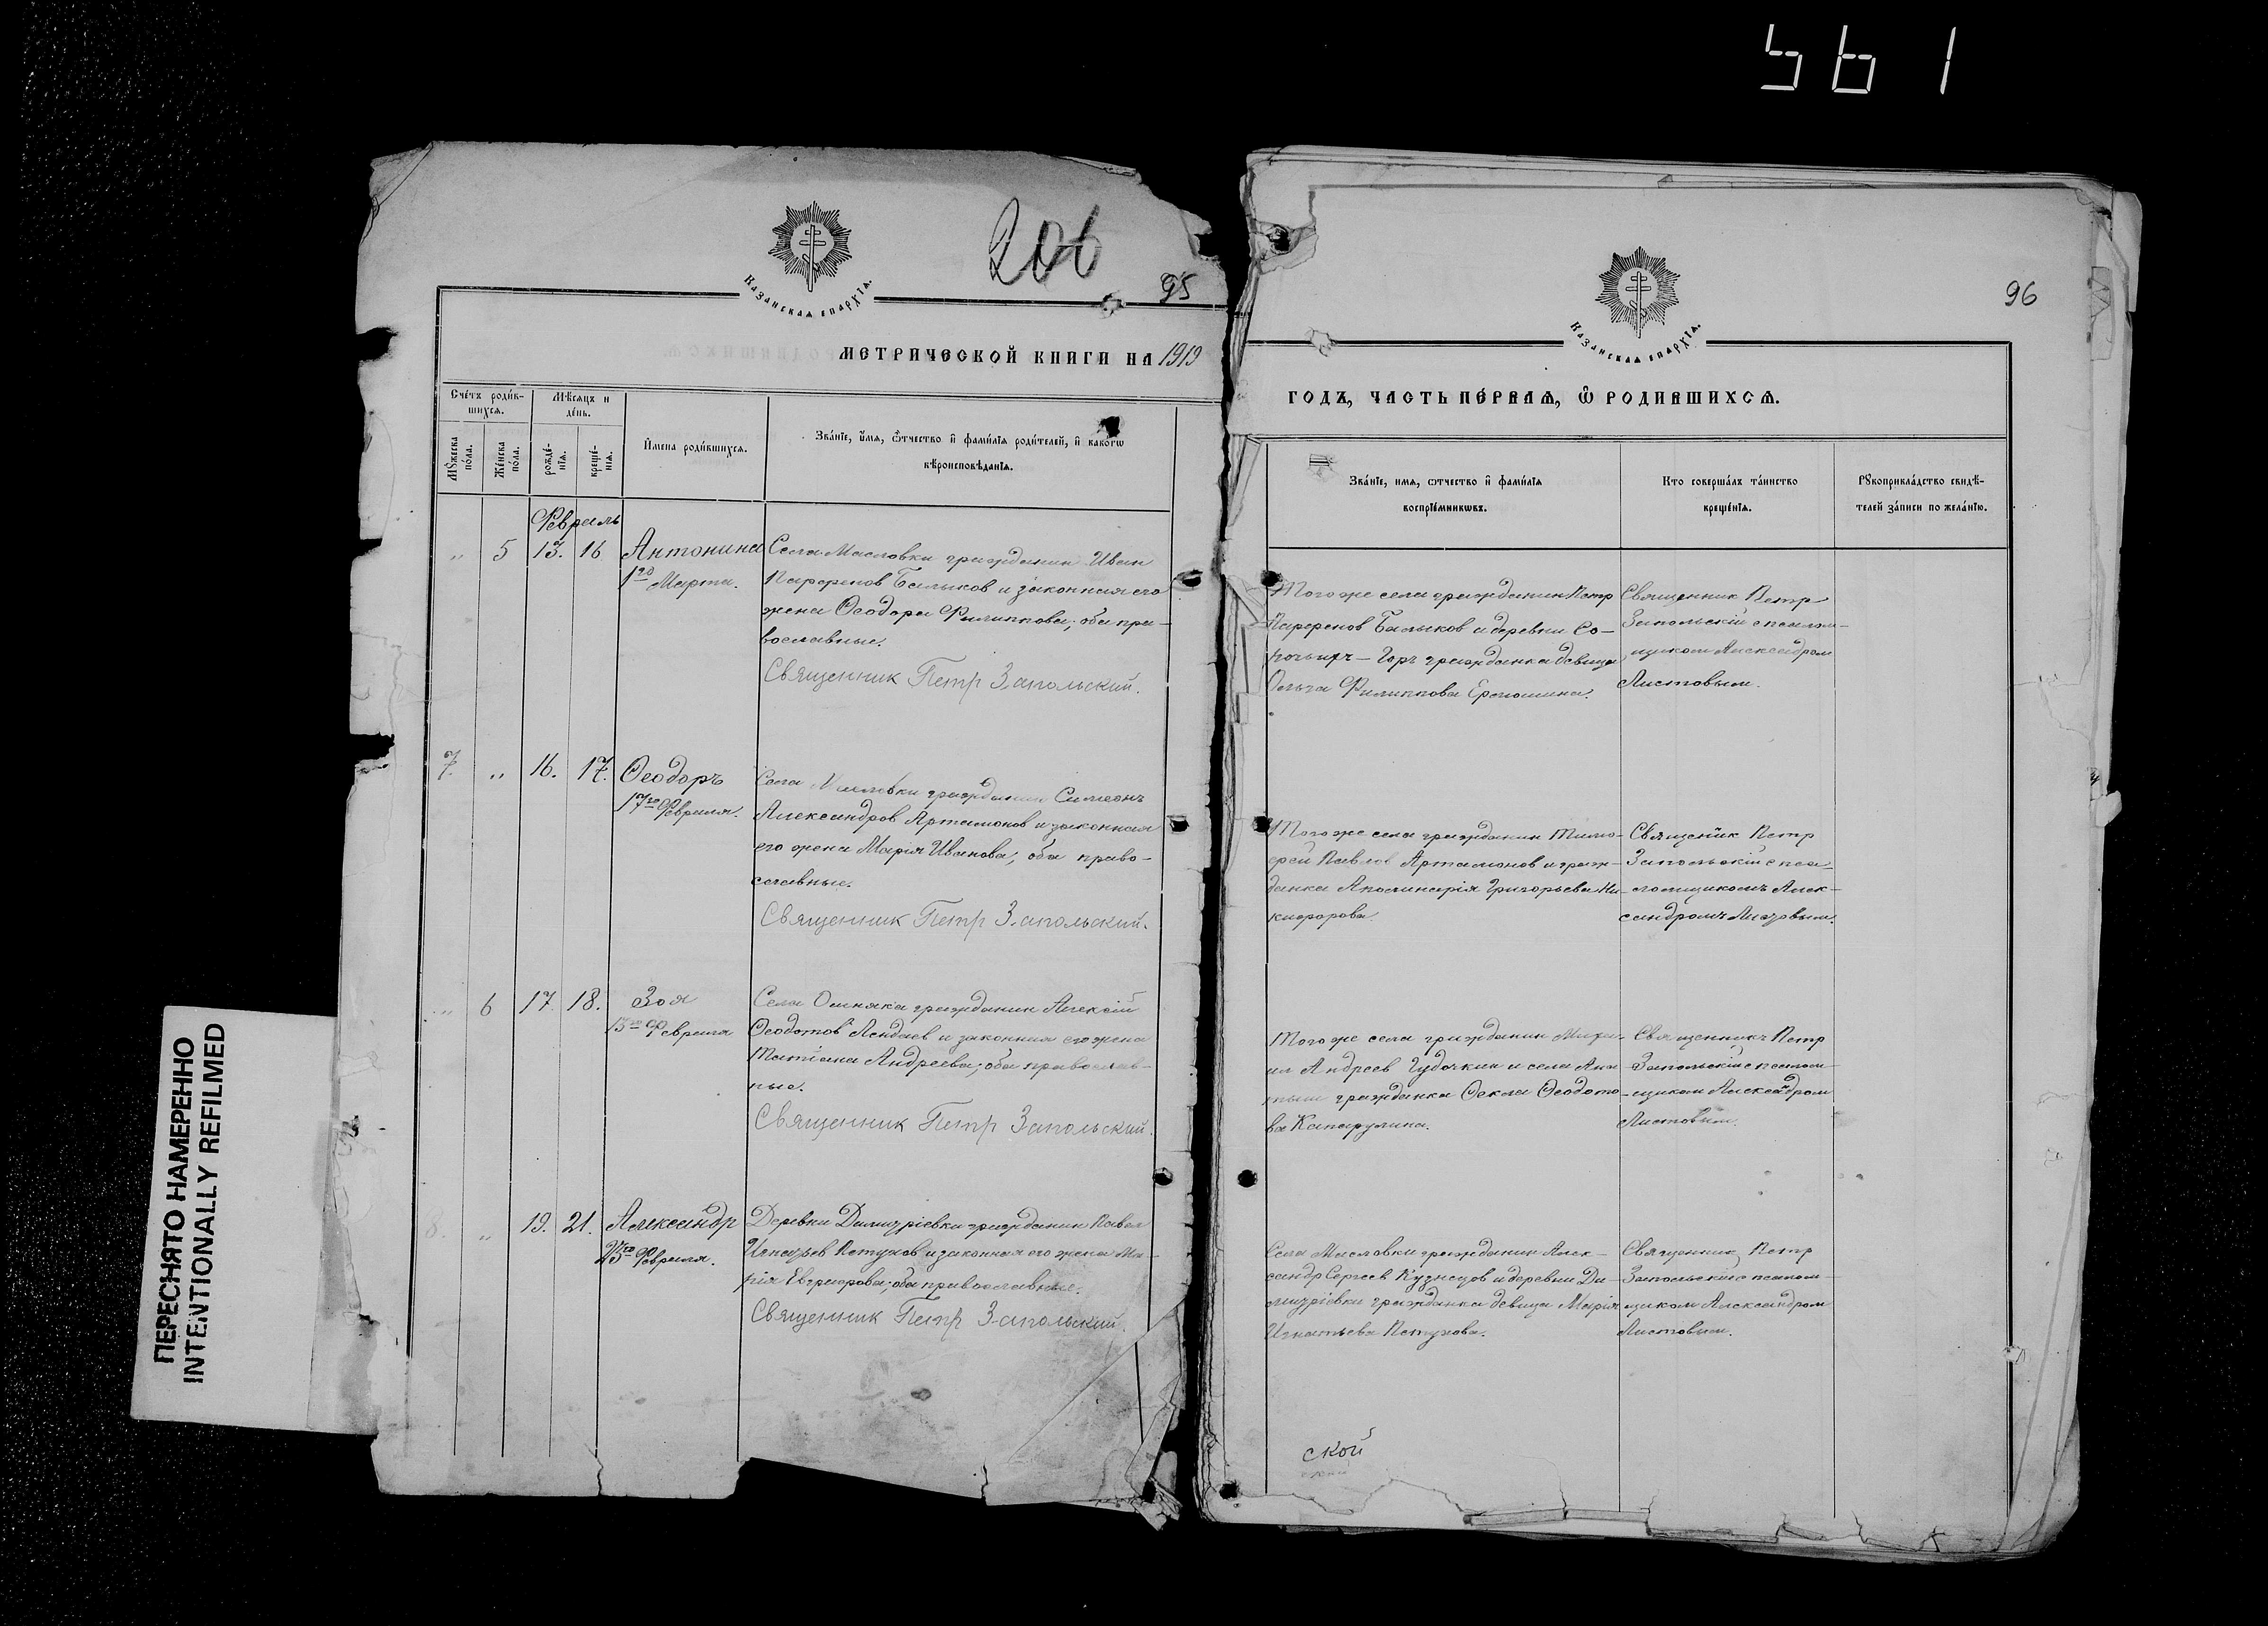 561
ПЕРЕСНЯТО НАМЕРЕННО
INTENTIONALLY REFILMED
206
95
КАЗАНСКАѦ ЕПАРХЇѦ.
МЕТРИЧЕСКОЙ КНИГИ НА 1919
Сче́тъ роди́в-
шихсѧ.
Мѣ́сѧцъ и
де́нь.
Мꙋ́жеска
по́ла.
Же́нска
по́ла.
рожде́-
нїѧ.
креще́-
нїѧ.
И҆́мена роди́вшихсѧ.
Зва́нїе, и҆́мѧ, ѻ҆́тчество и҆ фами́лїѧ роди́телей, и҆ како́гѡ
вѣроисповѣ́данїѧ.
Февраль
„ 5 13. 16 Антонина
1го Марта.
Села Масловки гражданин Иван
Парфенов Балыков и законная его
жена Ѳеодора Филиппова; оба пра-
вославные.
Священник Петр Запольский.
7. „ 16. 17. Ѳеодоръ
17го Февраля.
Села Масловки гражданин Симеонъ
Александров Артамонов и законная
его жена Марія Иванова; оба право-
славные.
Священник Петр Запольский.
„ 6 17 18. Зоя
13го Февраля
Села Омняка гражданин Алексій
Ѳеодотов и законная его жена
Татіана Андреева; оба православ-
ные.
Священник Петр Запольский.
8. „ 19. 21. Александр
Февраля.
Деревни Димитріевки гражданин Павел
Игнатьев Петухов и законная его жена Ма-
рія Евграфова; оба православные.
Священник Петр Запольский.
96
КАЗАНСКАѦ ЕПАРХЇѦ.
ГОДЪ, ЧАСТЬ ПЕ́РВАѦ, Ѽ РОДИВШИХСѦ.
Зва́нїе, имѧ, ѻтчество и҆ фами́лїѧ
воспрїе́мникѡвъ.
Кто соверша́лъ та́инство
креще́нїѧ.
Рꙋкоприкла́дство свидѣ́-
телей за́писи по жела́нїю.
Того же села гражданин Петр
Парфенов Балыков и деревни Со-
рочьихъ-Горъ гражданка девица
Ольга Филиппова Ермошина.
Священник Петр
Запольскій с псалом-
щиком Александром
Листовым.
Того же села гражданин Тимо-
фей Павлов Артамонов и граж-
данка Аполинарія Григорьева Ни-
кифорова.
Священик Петр
Запольскій с пса-
ломщикомъ Алек-
сандромъ Листовым.
Того же села гражданин Миха-
ил Андреев Гудочкин и села
гражданка Ѳекла Ѳеодото-
ва
Священникъ Петр
Запольскій с псалом-
щиком Александром
Листовым.
Села Масловки гражданин Алек-
сандр Сергеев Кузнецов и деревни Ди-
митріевки гражданка девица Марія
Игнатьева Петухова.
Священник Петр
Запольскій с псалом-
щиком Александром
Листовым.
ской